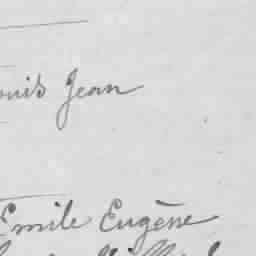 ouis Jean
Emile Eugène